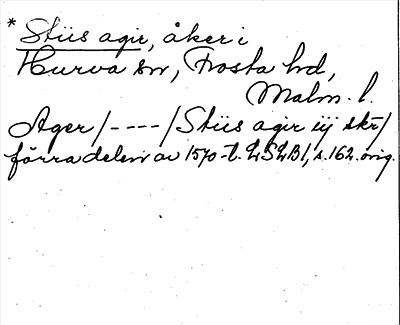 * Stiis agir, åker i
Hurva sn, Frosta hd,
Malm. l.
Ager /----/ Stiis agir iij skr/
förra delen av 1570-t. LSLB1, s. 162. orig.